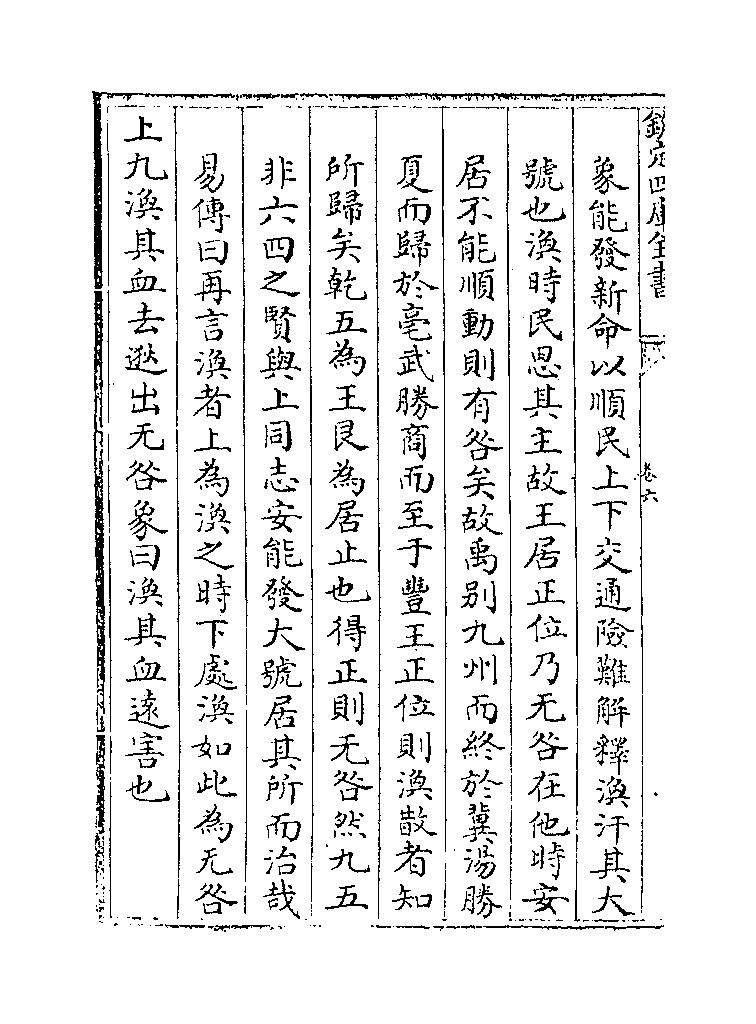 欽定四庫全書
卷六
象能發新命以順民上下交通險難解釋渙汗其大
號也渙時民思其主故王居正位乃无咎在他時安
居不能順動則有咎矣故禹别九州而終於冀湯勝
夏而歸於亳武勝商而至于豐王正位則渙散者知
所歸矣乾五為王艮為居止也得正則无咎然九五
非六四之賢與上同志安能發大號居其所而治哉
易傳曰再言渙者上為渙之時下處渙如此為无咎
上九渙其血去逖出无咎象曰渙其血遠害也